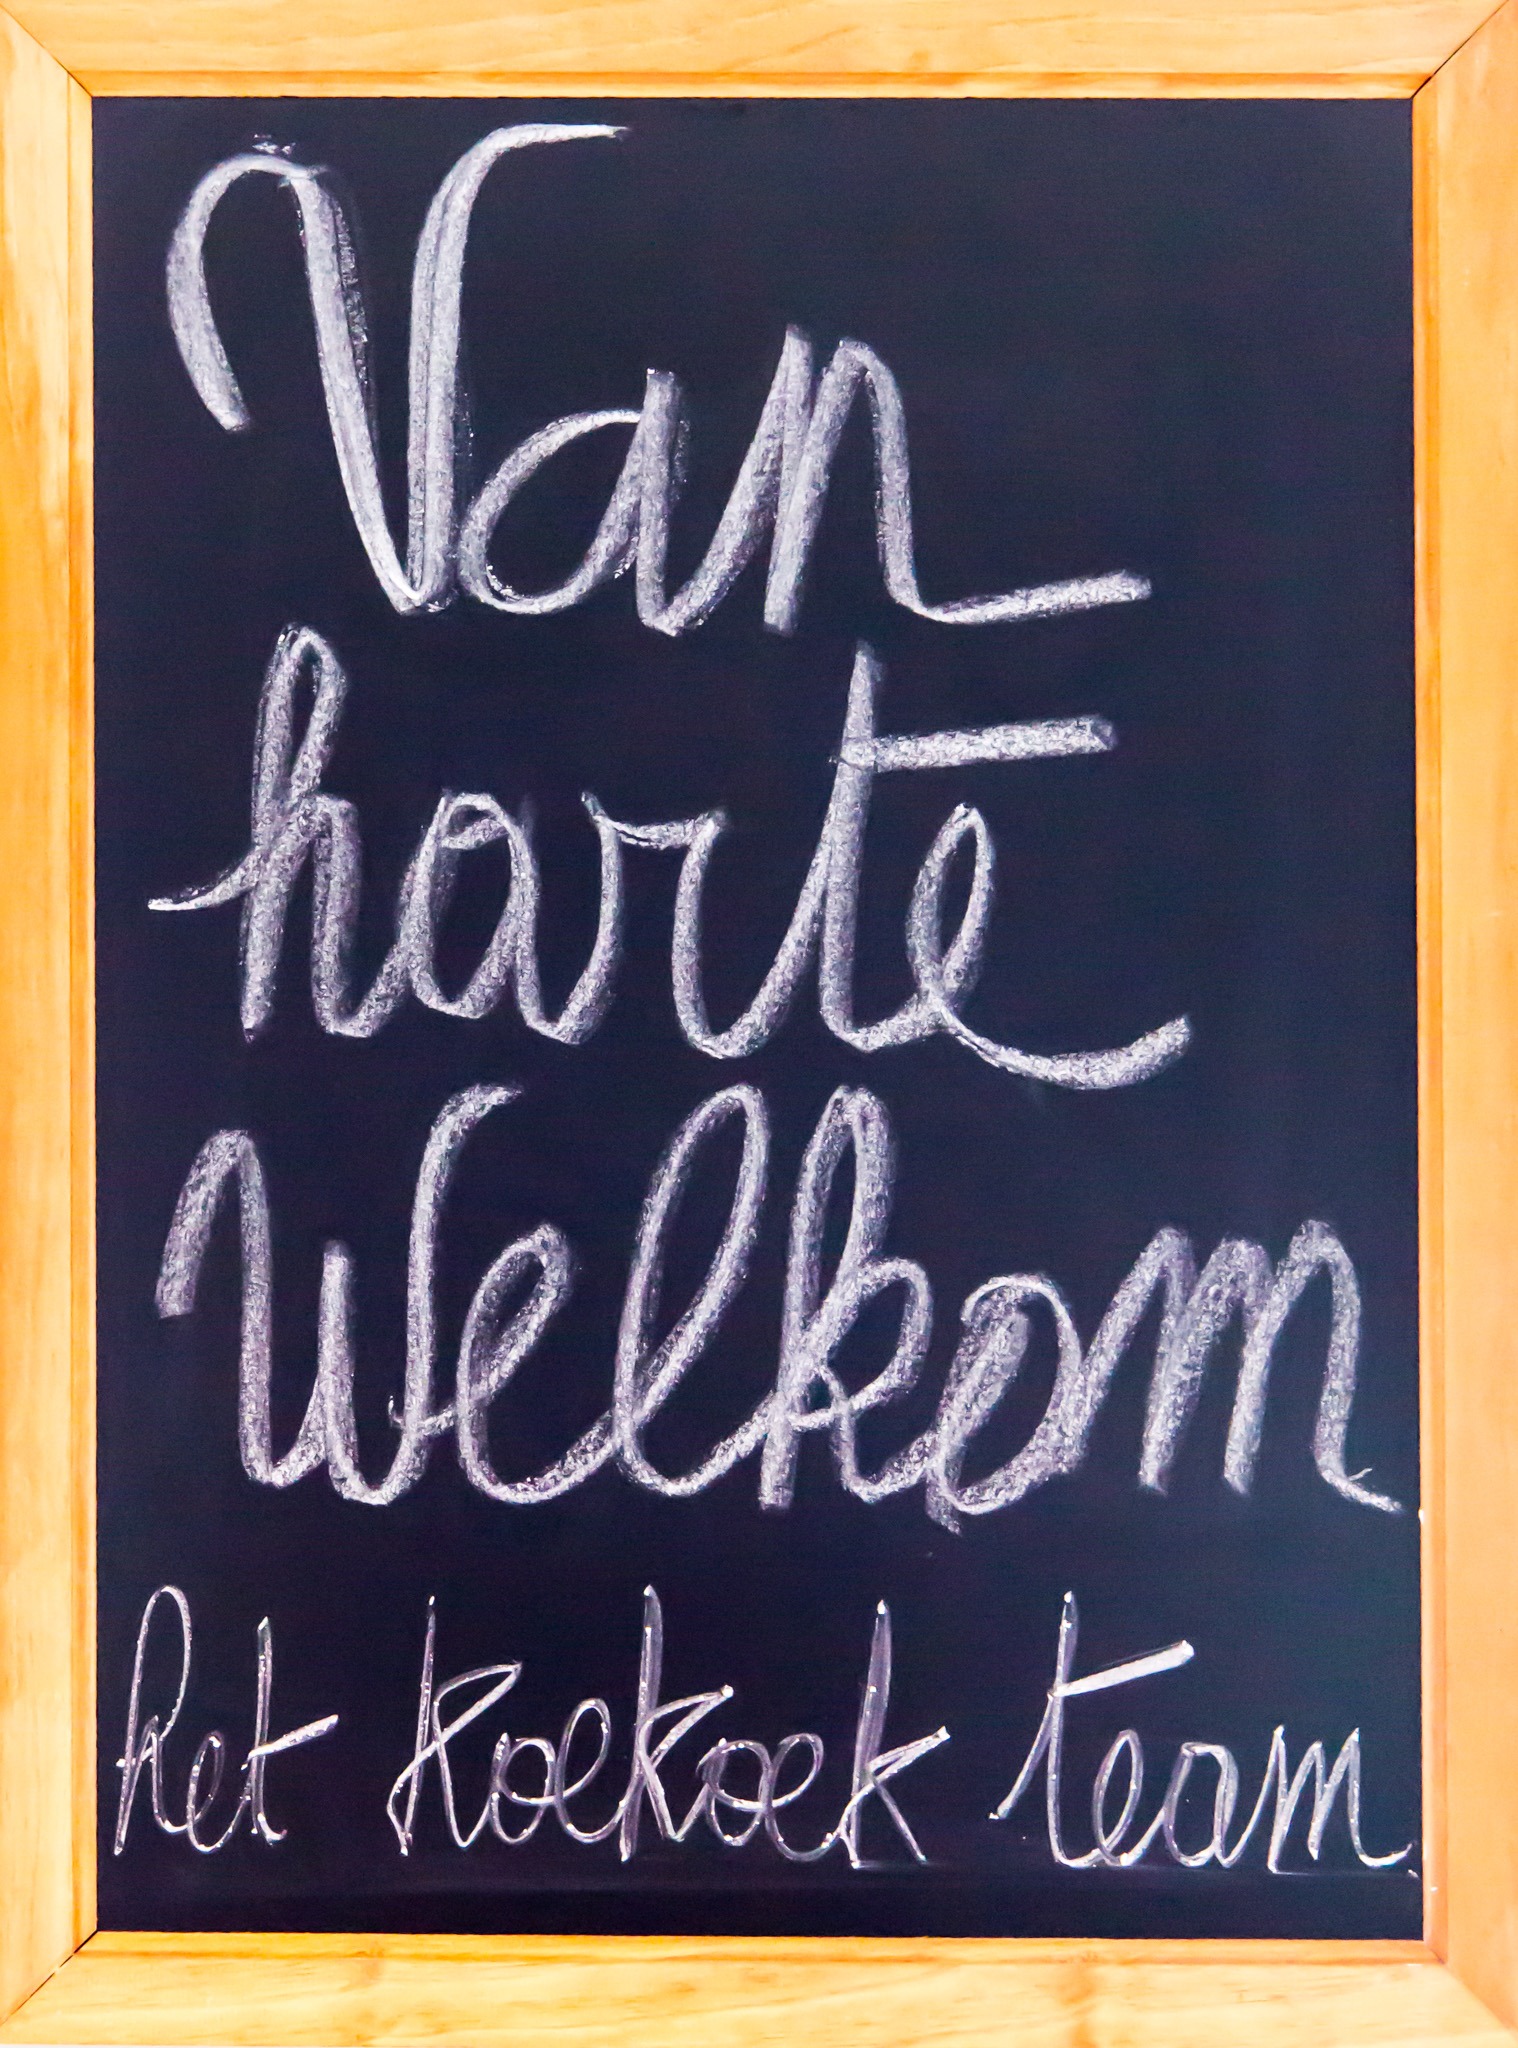 Van
harte
Welkom
het Koekoek team